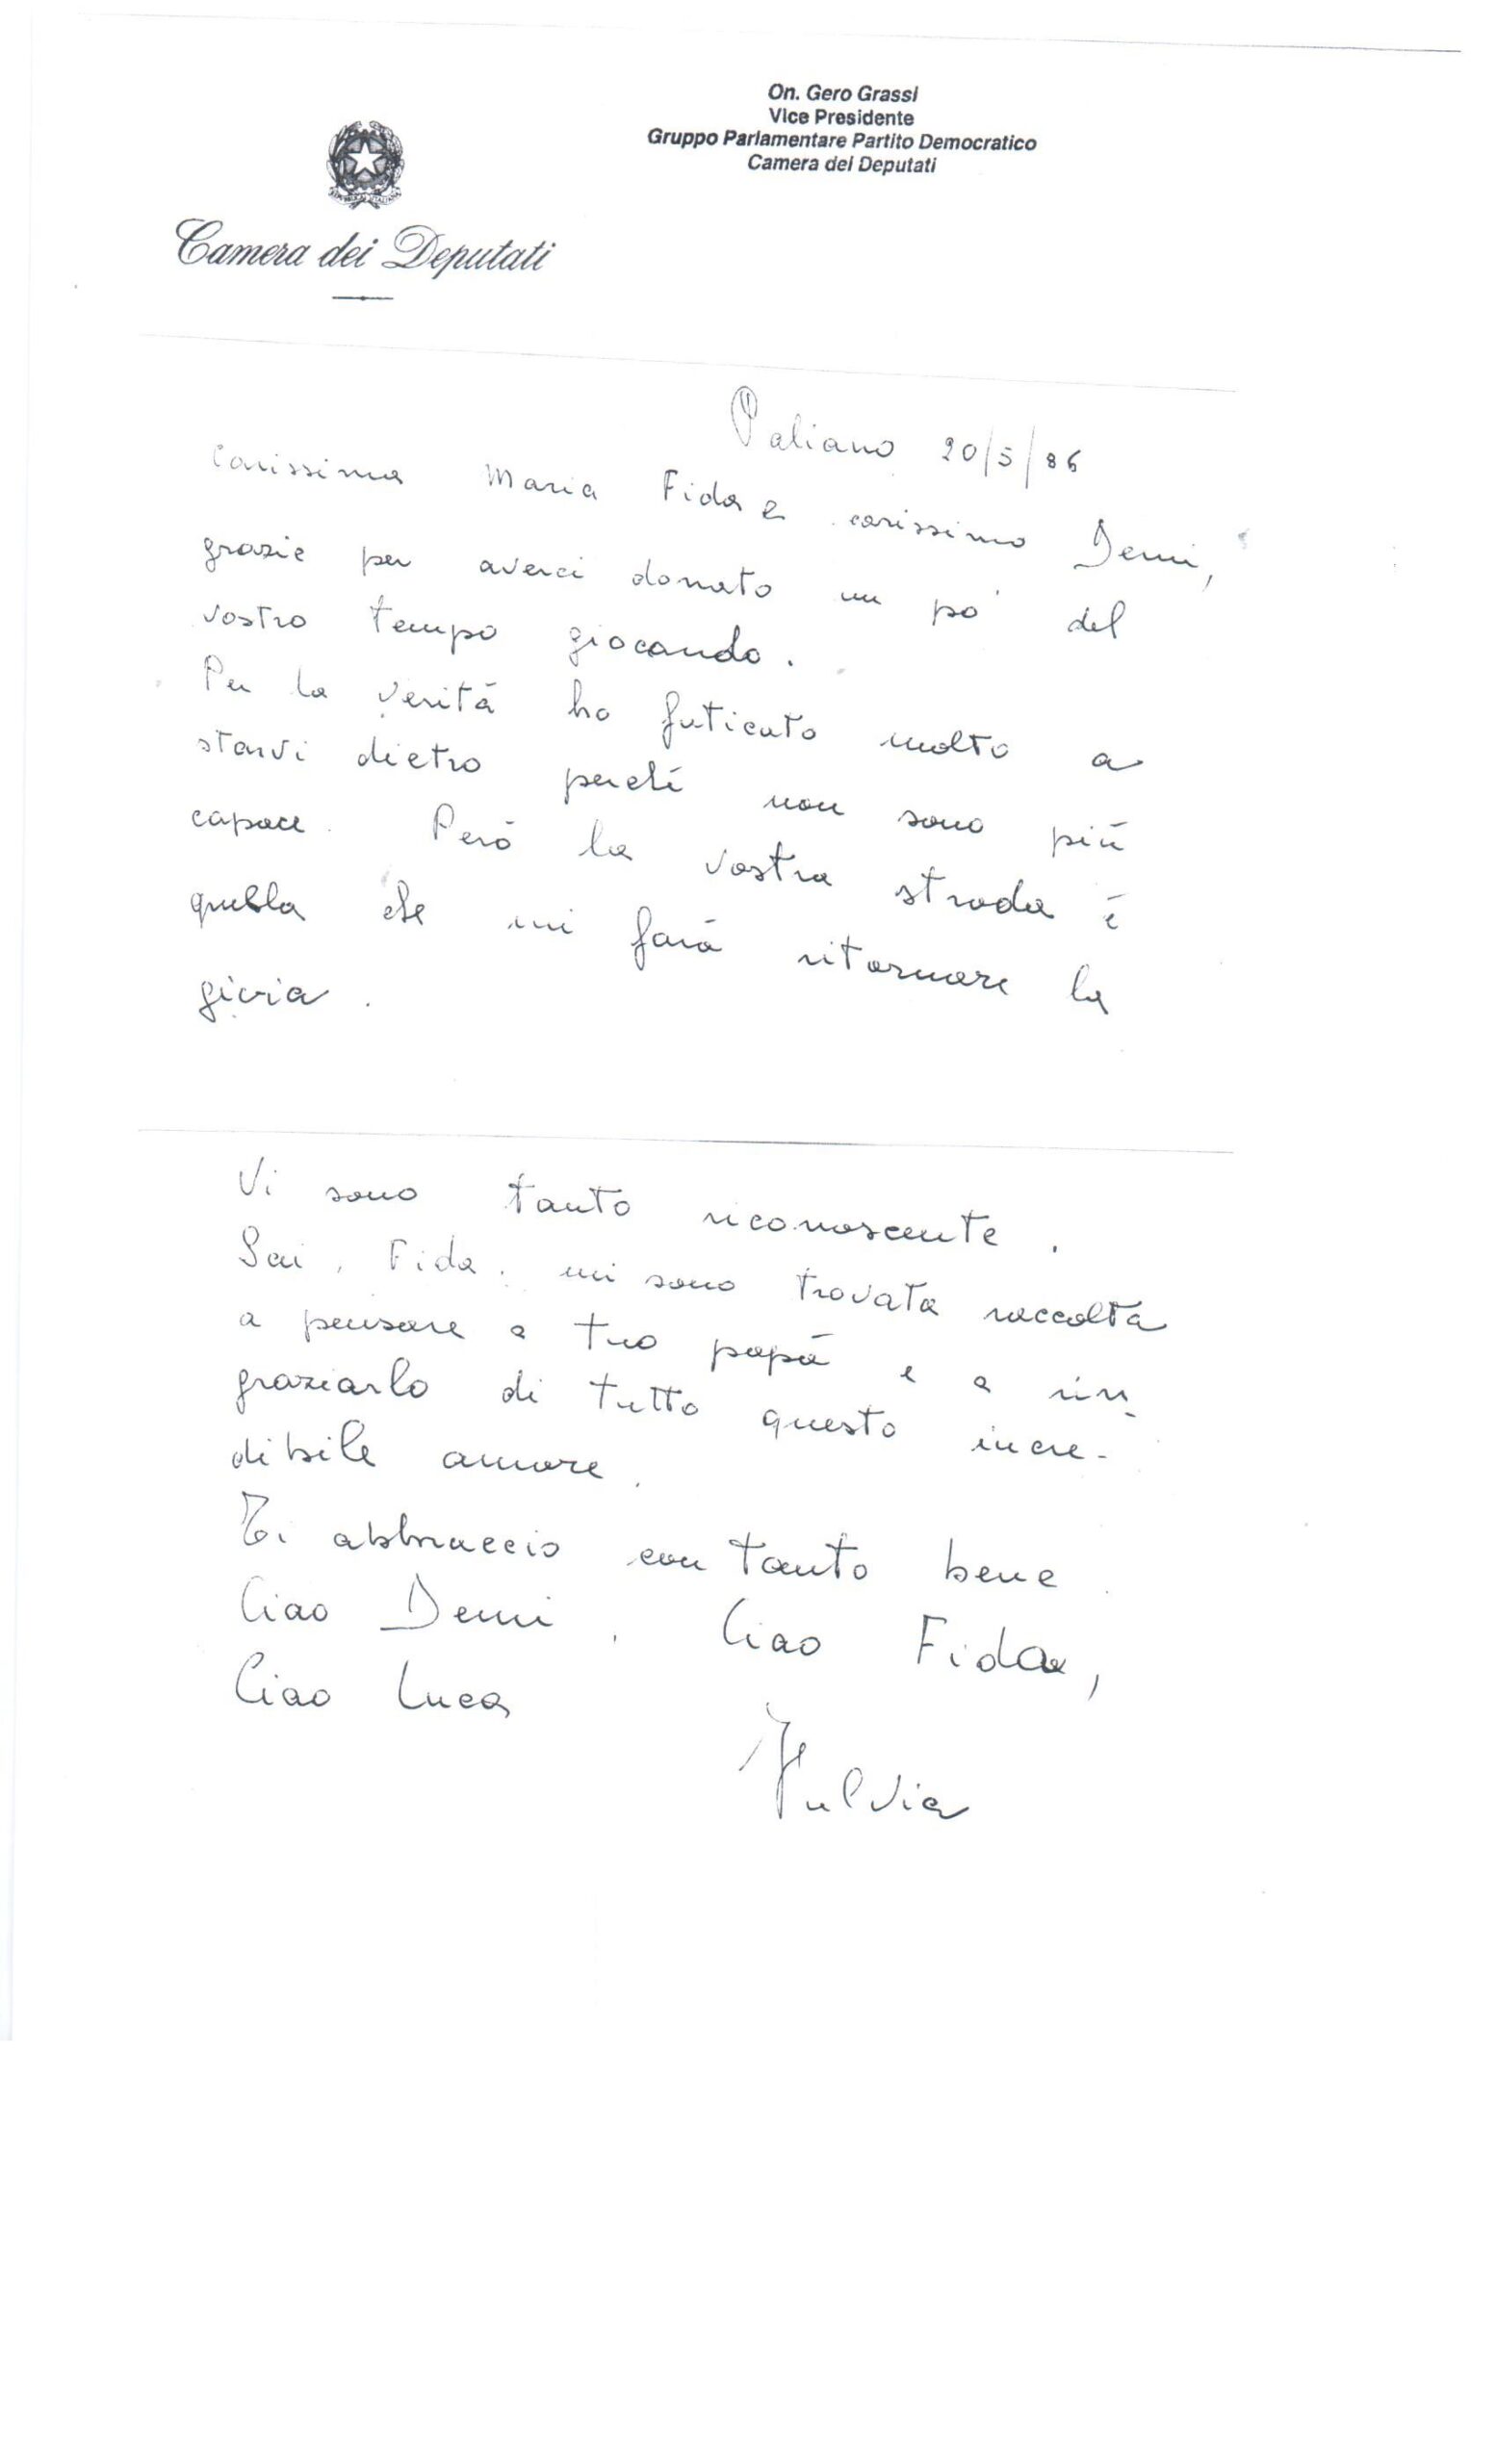 On. Gero Grassi
Vice Presidente
Gruppo Parlamentare Partito Democratico
Camera dei Deputati
Camera dei Deputati
Paliano 20/5/86
Carissima Maria Fida e carissimo Demi,
grazie per averci donato un po' del
vostro tempo giocando.
Per la verità ho faticato molto a
starvi dietro perché non sono più
capace. Però la vostra strada è
quella che mi farà ritornare la
gioia.
Vi sono tanto riconoscente.
Sai, Fida, mi sono trovata raccolta
a pensare a tuo papà e a rin-
graziarlo di tutto questo incre-
dibile amore.
Ti abbraccio con tanto bene.
Ciao Demi, Ciao Fida,
Ciao Luca
Fulvia